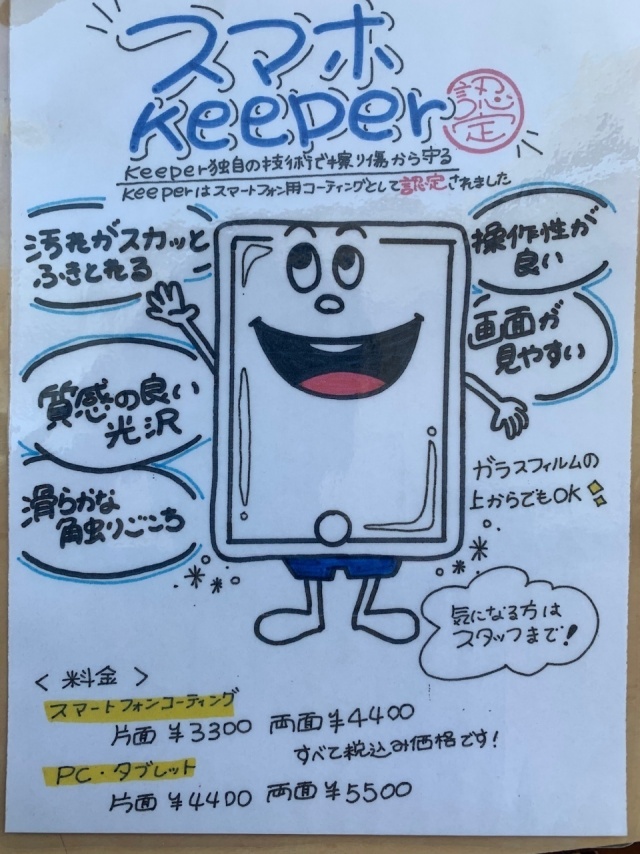 スマホ
keeper 認定
keeper独自の技術で擦り傷から守る
keeperはスマートフォン用コーティングとして認定されました
汚れがスカッと
ふきとれる
操作性が
良い
画面が
見やすい
質感の良い
光沢
滑らかな
触りごこち
ガラスフィルムの
上からでもOK
気になる方は
スタッフまで!
<料金>
スマートフォンコーティング
片面 ¥3300 両面 ¥4400
すべて税込み価格です!
PC・タブレット
片面 ¥4400 両面 ¥5500